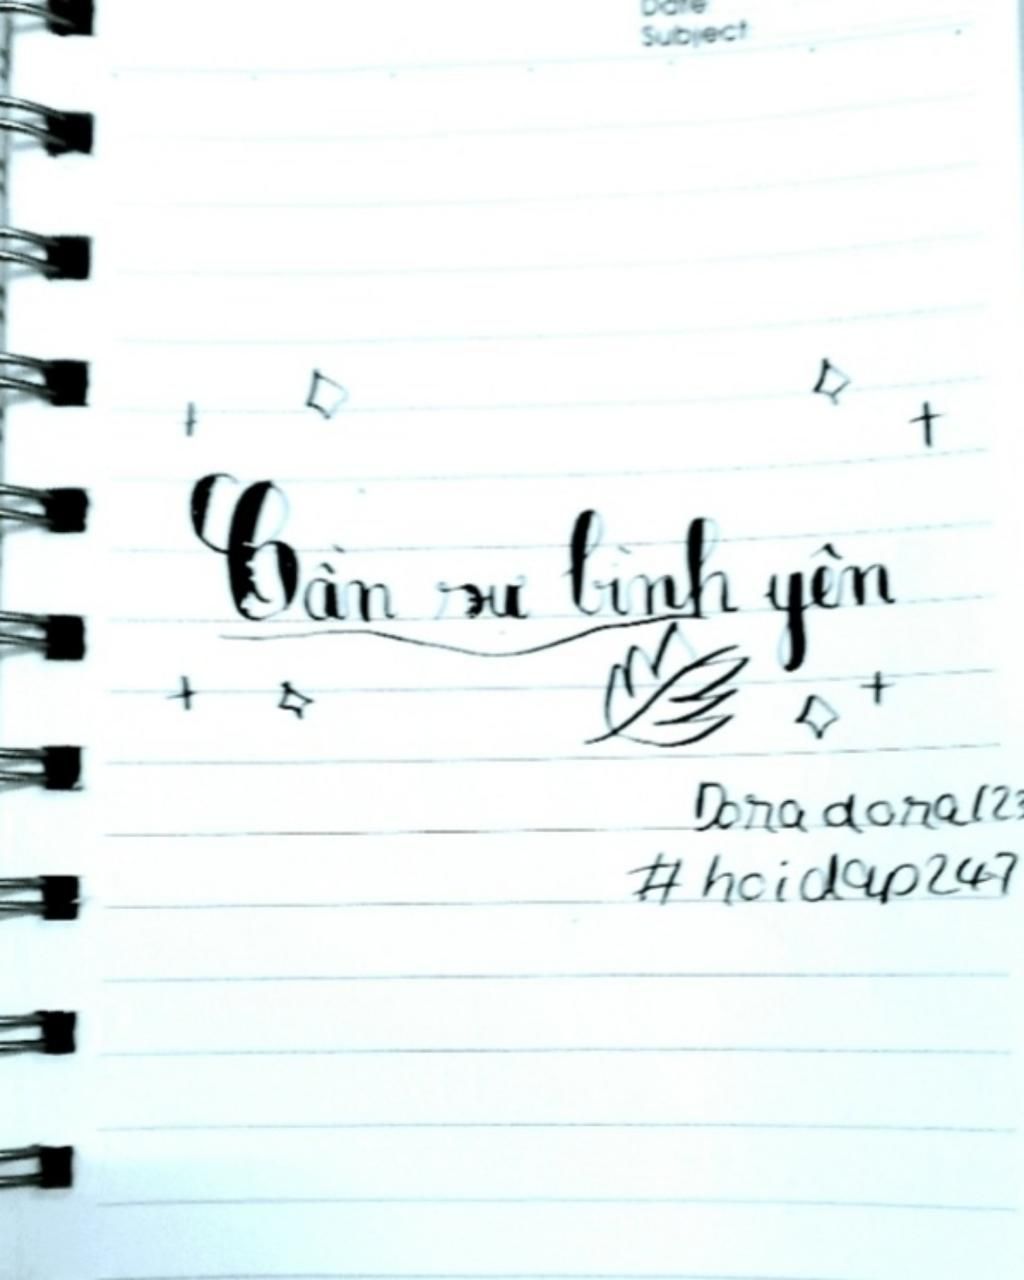 Date
Subject
Cần sự bình yên
Doradora123
#hoidap247